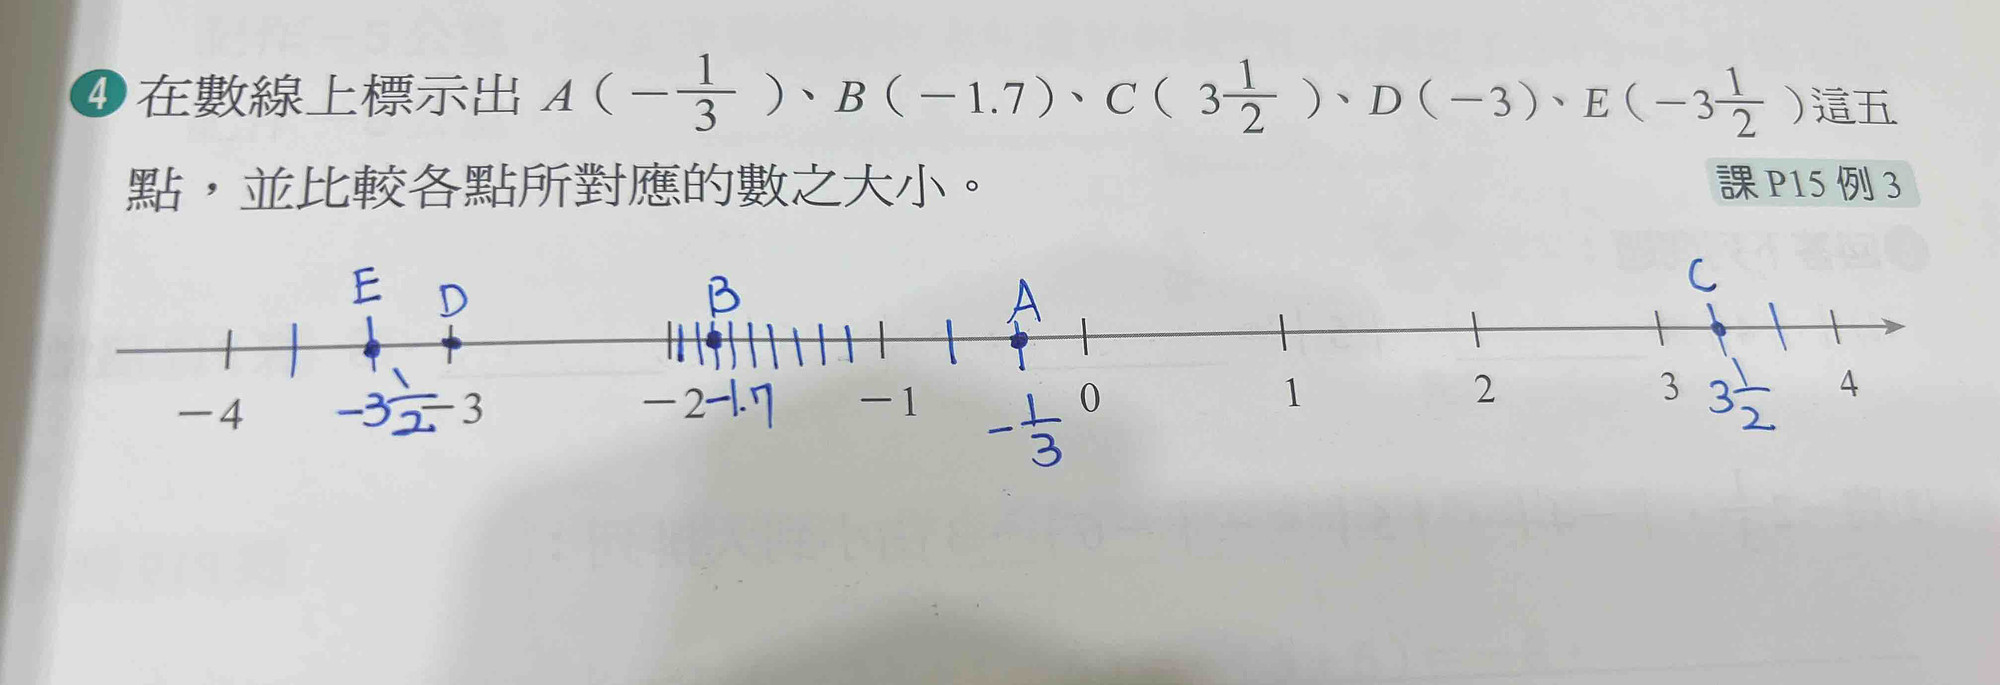 4 在數線上標示出 A(-1/3)、B(-1.7)、C(3 1/2)、D(-3)、E(-3 1/2)這五
點,並比較各點所對應的數之大小。
課 P15 例 3
E D B A C
-4 -3 1/2 -3 -2 -1.7 -1 -1/3 0 1 2 3 3 1/2 4